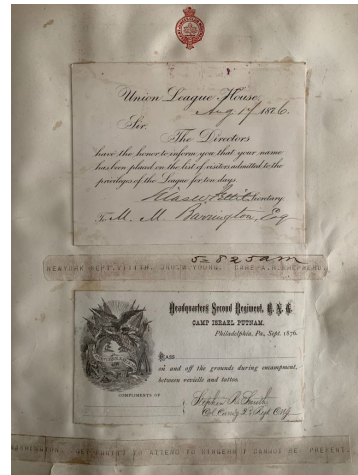 Union League House,
Aug 17 1876.
Sir.
The Directors
have the honor to inform you that your name
has been placed on the list of visitors admitted to the
privileges of the League for ten days.
Secretary
To M. M. Barrington, Esq
5= 825am
NEWYORK SEPT.
YOUNG.
Headquarters Second Regiment,
CAMP ISRAEL PUTNAM.
Philadelphia, Pa., Sept. 1876.
PASS
on and off the grounds during encampment,
between reveille and tattoo.
COMPLIMENTS OF
Stephen R. Smith
TO ATTEND TO
CANNOT BE PRESENT.